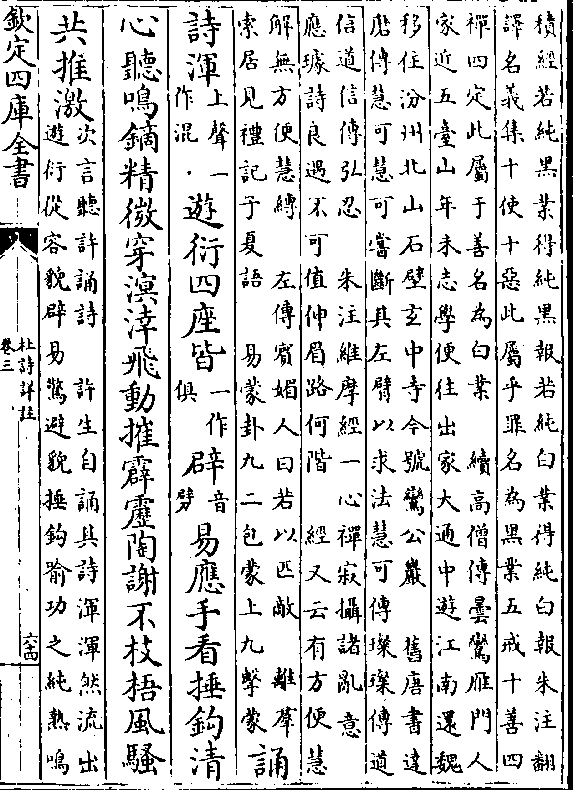 積經若純黒業得純黒報若純白業得純白報朱注翻
譯名義集十使十惡此屬乎罪名為黒業五戒十善四
禪四定此屬于善名為白業　續高僧傳曇鸞雁門人
家近五臺山年未志學便往出家大通中遊江南還魏
移住汾州北山石壁玄中寺今號鸞公巖　舊唐書達
磨傳慧可慧可嘗斷其左臂以求法慧可傳璨璨傳道
信道信傳弘忍　朱注維摩經一心禪寂攝諸亂意
應璩詩良遇不可值伸眉路何階　經又云有方便慧
解無方便慧縛　左傳賓媚人曰若以匹敵　離羣
索居見禮記子夏語　易蒙卦九二包蒙上九擊蒙
誦
詩渾上聲一作混．遊衍四座皆一作俱辟音劈易應手看捶鉤清
心聽鳴鏑精微穿溟涬飛動摧霹靂陶謝不枝梧風騷
共推激次言聽許誦詩　許生自誦其詩渾渾然流出
遊衍從容貌辟易驚避貌捶鉤喻功之純熟鳴
欽定四庫全書
杜詩詳註
卷三
六十四